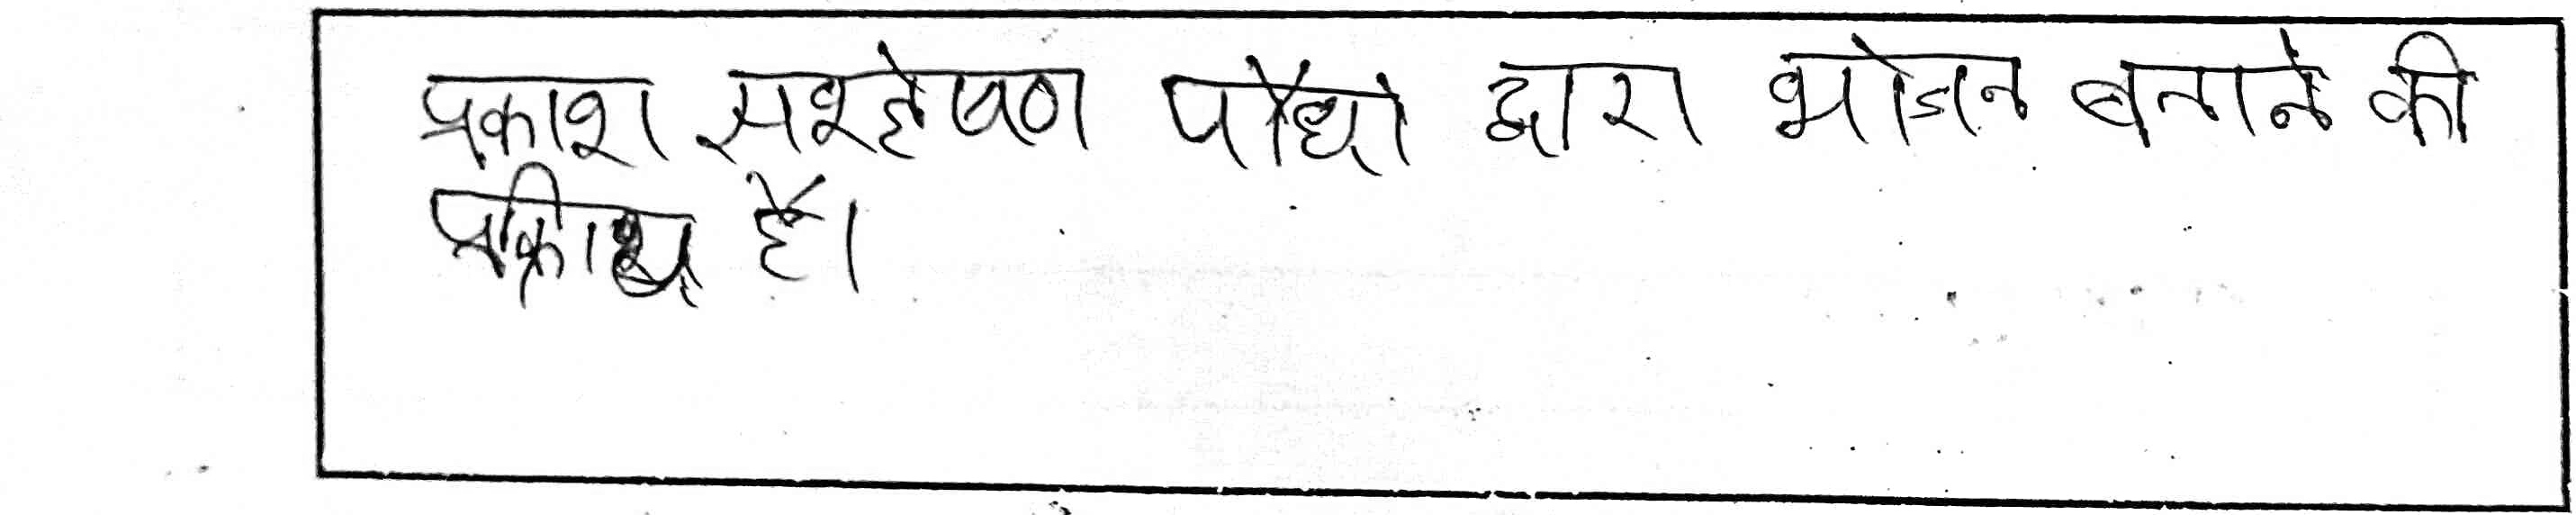 प्रकाश सश्लेषण पौधो द्वारा भोजन बनाने की
प्रक्रिया है।